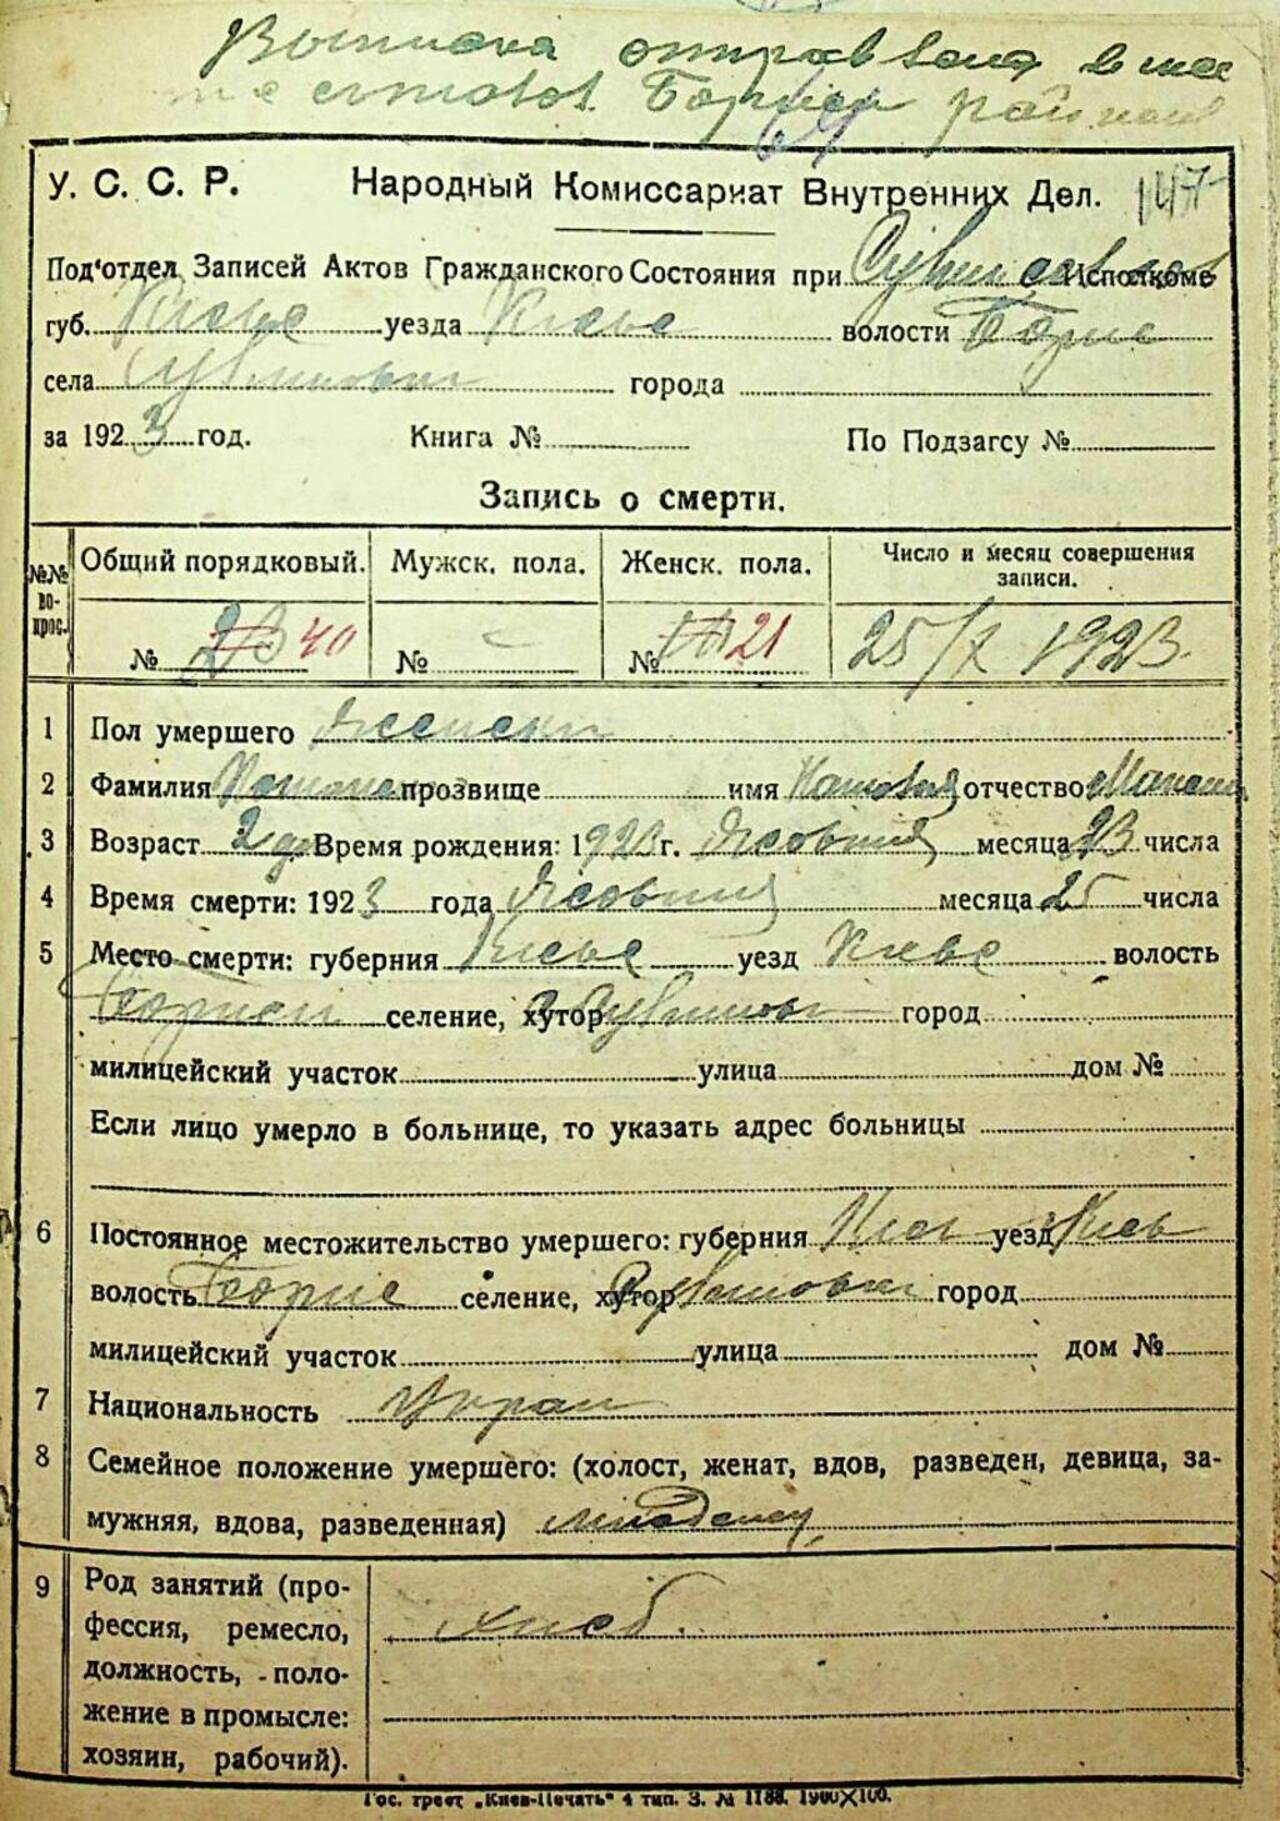 У. С. С. Р. Народный Комиссариат Внутренних Дел. 147
Под'отдел Записей Актов Гражданского Состояния при Исполкоме
губ. Киевс уезда Киевс волости Борис
села города
за 1923 год. Книга № По Подзагсу №
Запись о смерти.
№№ вопрос. Общий порядковый. Мужск. пола. Женск. пола. Число и месяц совершения записи.
№ 40 № – № 21 25/X 1923.
1 Пол умершего женски
2 Фамилия прозвище имя отчество
3 Возраст 2 Время рождения: 1923 г. Жовтня месяца 23 числа
4 Время смерти: 1923 года Жовтня месяца 25 числа
5 Место смерти: губерния Киевс уезд Киевс волость
селение, хутор город
милицейский участок улица дом №
Если лицо умерло в больнице, то указать адрес больницы
6 Постоянное местожительство умершего: губерния Киев уезд Киев
волость Борис селение, хутор город
милицейский участок улица дом №
7 Национальность Украи
8 Семейное положение умершего: (холост, женат, вдов, разведен, девица, за-
мужняя, вдова, разведенная) младенец
9 Род занятий (про-
фессия, ремесло, хлеб.
должность, поло-
жение в промысле:
хозяин, рабочий).
Гос. трест „Киев-Печать" 4 тип. З. № 1188. 1900×100.